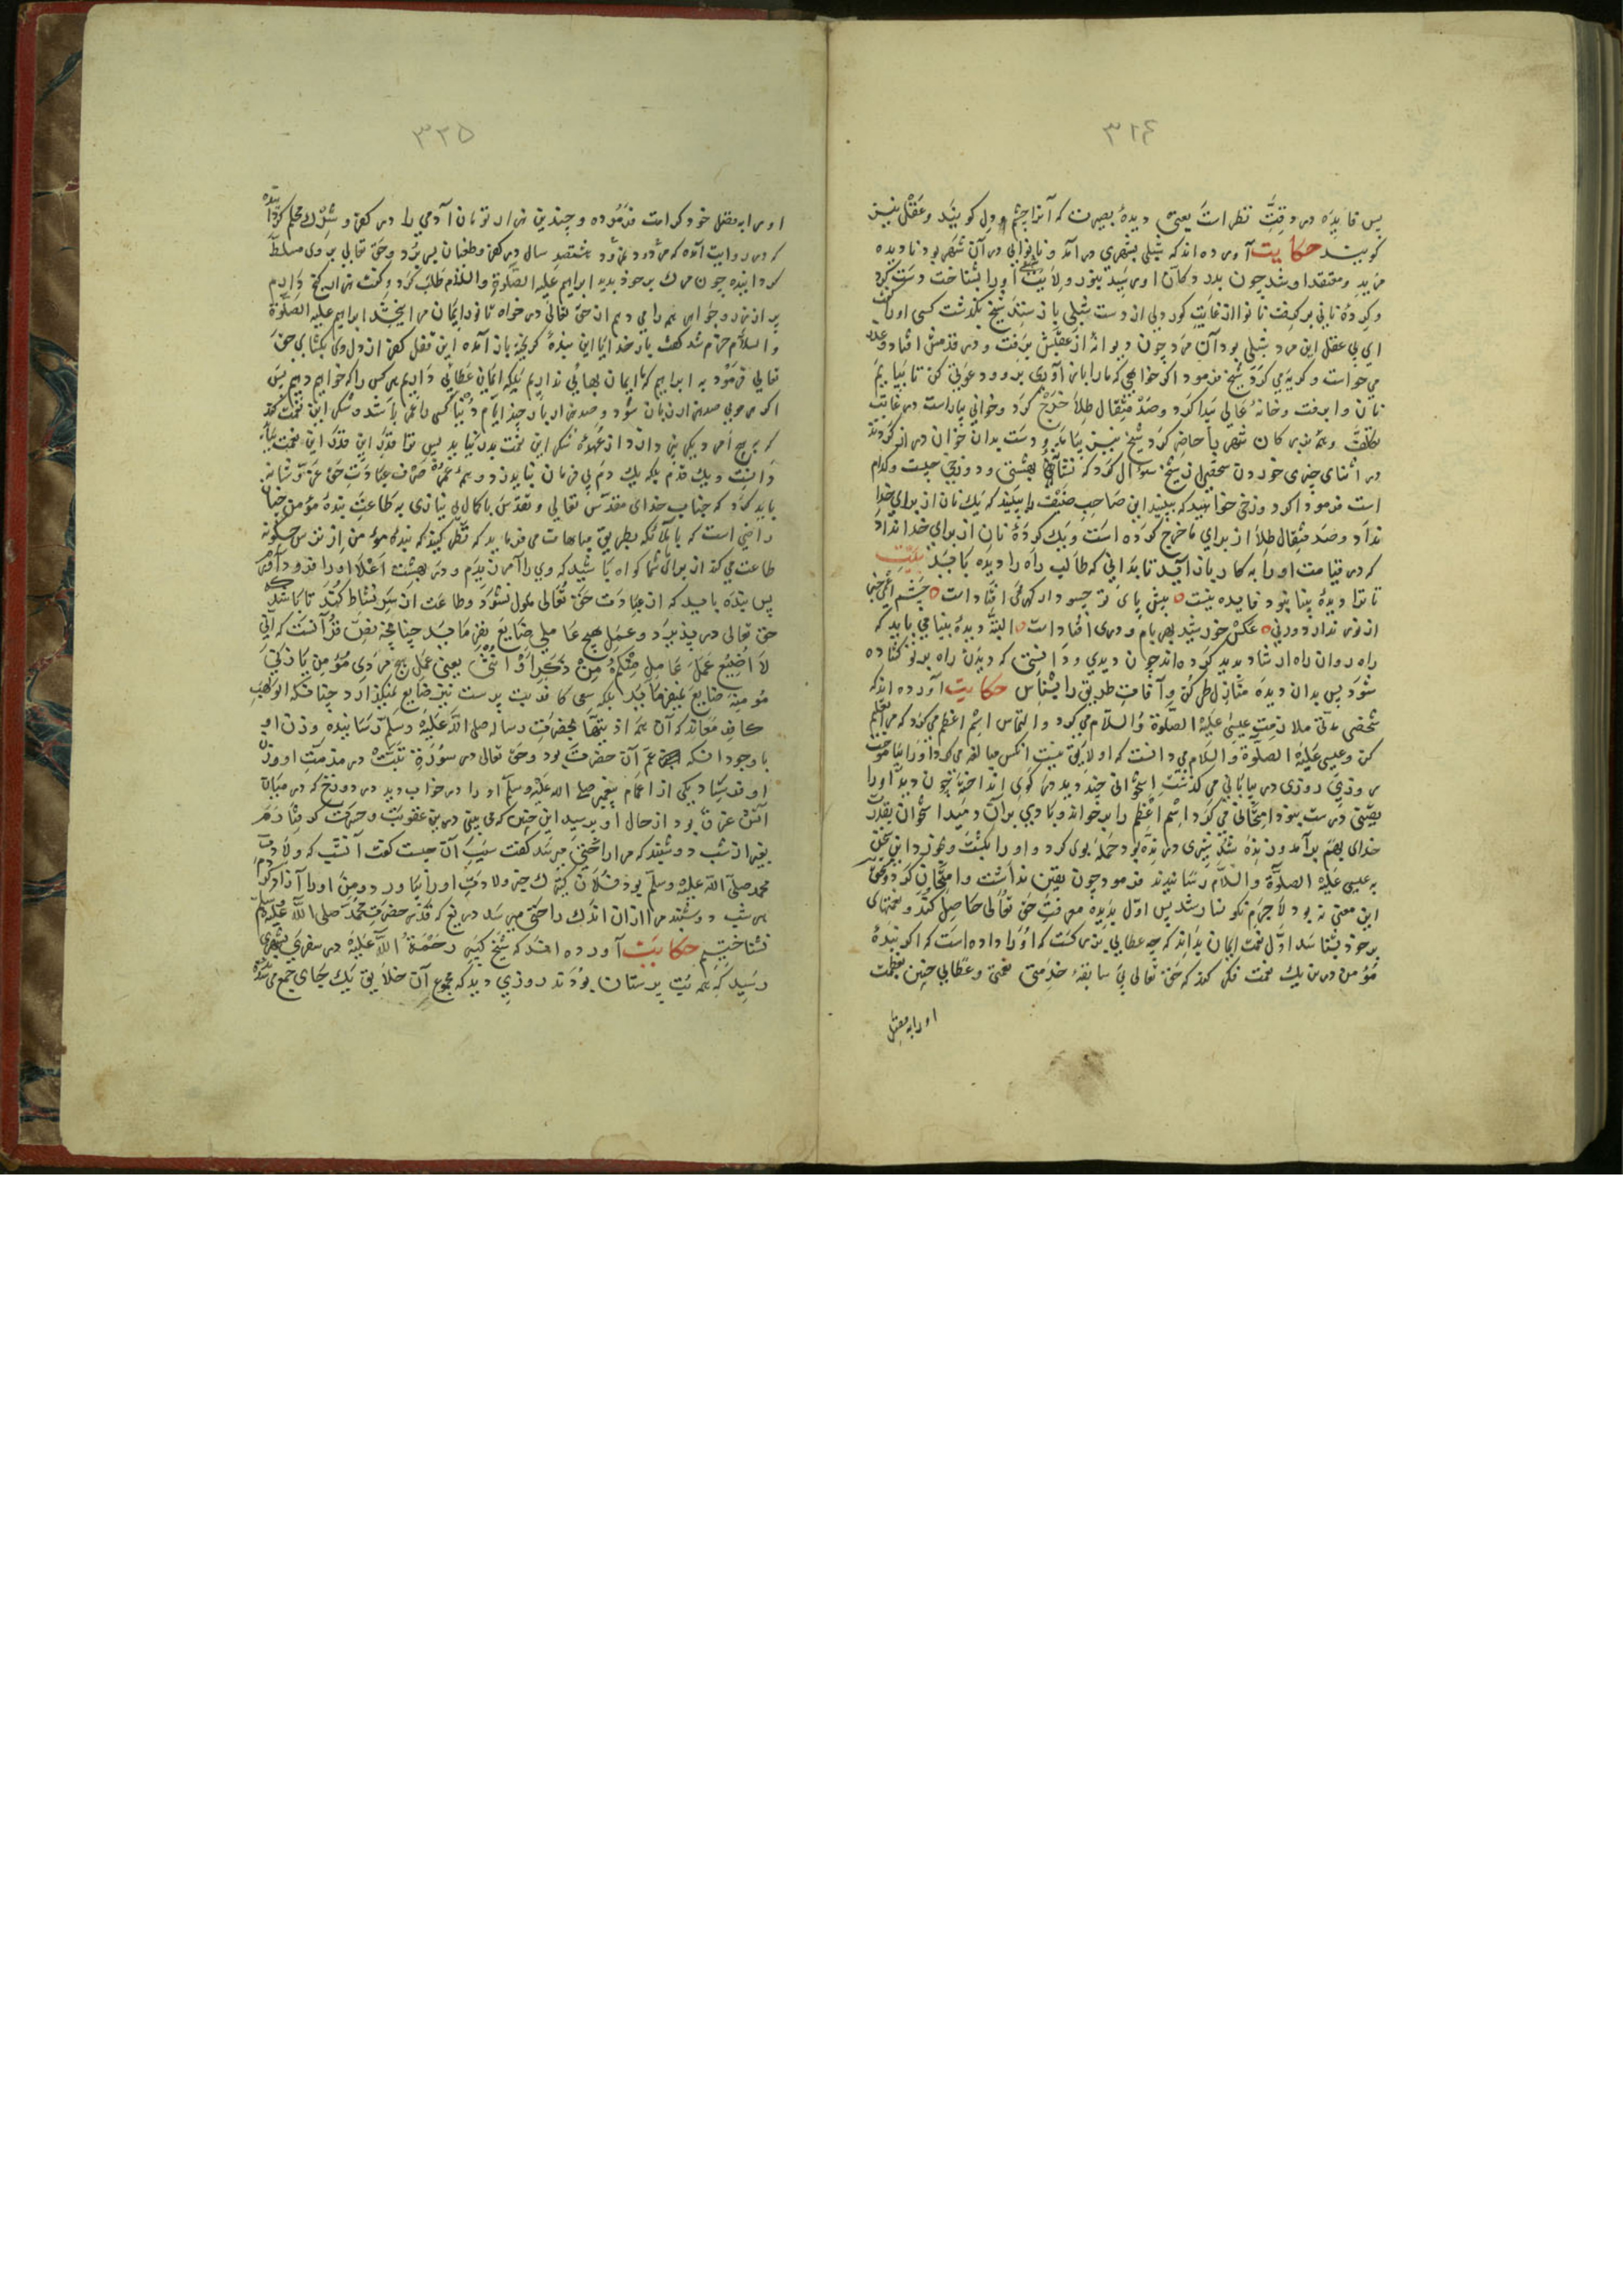 ۳۲۴
پس فایده در وقت نظر است یعنی دیدهٔ بصیرت که آنرا چشم دل کویند و عقل نیز
کویند حکایت آورده اند که شبلی بشهری در آمد و نانوایی در آن شهر بود نادیده
مرید و معتقد او شد چون بدر دکان او رسید بنور ولایت او را بشناخت دست کرد
و کردهٔ نانی بر کرفت نانوا از غایت کوردلی از دست شبلی باز ستد شیخ بکذشت کسی او را کفت
ای بی عقل این مرد شبلی بود آن مرد چون دیوانه از عقبش برفت و در قدمش افتاد و عذر
می خواست و کریه می کرد شیخ فرمود اکر خواهی که ما را باز آوری برو و دعوتی کن تا بیاییم
نان وا برفت و خانهٔ عالی پیدا کرد و صد مثقال طلا خرج کرد و خوانی بیاراست در غایت
تکلف و همه بزرکان شهر را حاضر کرد شیخ نیز بیامد و دست بدان خوان دراز کردند
در اثنای چیزی خوردن شخصی از شیخ سؤال کرد که نشان بهشتی و دوزخی چیست و کدام
است فرمود اکر دوزخی خواهید که ببینید این صاحب ضیف را ببینید که یک نان از برای خدا
نداد و صد مثقال طلا از برای ما خرج کرده است و یک کردهٔ نان از برای خدا نداد
که در قیامت او را به کار باز آید تا بدانی که طالب راه را دیده باید بیت
تا ترا دیدهٔ بینا نبود فایده نیست پیش پای تو چسود ار کهری افتاد است چشم
از نور ندارد ورنی عکس خورشید بهر بام و دری افتاد است البته دیدهٔ بینا می باید که
راه روان راه ارشاد پدید کرده اند چون دیدی و دانستی که دیدن راه بر تو کشاده
شود پس بدان دیده منازل طی کن و آفات طریق را بشناس حکایت آورده اند که
شخصی مدتی ملازمت عیسی علیه الصلوة والسلام می کرد و التماس اسم اعظم می کرد که مرا تعلیم
کن و عیسی علیه الصلوة والسلام می دانست که او لایق نیست انکس مبالغه می کرد او را بیاموخت
روزی در بیابانی می کذشت استخوانی چند دید در کوی انداخته چون دید او را
یقینی درست نبود امتحانی می کرد اسم اعظم را بر خواند و بادی بر آن دمید استخوان بقدرت
خدای بهم بر آمد و زنده شد شیری درنده بود حمله بوی کرد و او را بکشت و بخورد این سخن
به عیسی علیه الصلوة والسلام رسانیدند فرمود چون یقین نداشت و امتحان کرد و محق
این معنی نه بود لاجرم نکو نسار شد پس اول بدیده معرفت حق تعالی حاصل کند و نعمتهای
بر خود بشناسد اول نعمت ایمان بداند که چه عطایی بزرکست که او را داده است که اکر بندهٔ
مؤمن درین یک نعمت فکر کند که حق تعالی بی سابقهٔ خدمتی نعمتی و عطایی چنین بعظمت
او را به فضل
۳۲۵
او را به فضل خود کرامت فرموده و چندین هزار تومان آدمی را در کفر و شرک محکم کردانیده
که در روایت آمده که مردود نمرود هشتصد سال در کفر و طغیان بسر برد و حق تعالی بر وی مسلط
کردانیده چون مرک بر خود بدید ابراهیم علیه الصلوة والسلام طلب کرد و کفت هزار کنج دارم
پر از زر و جواهر همه را می دهم از حق تعالی در خواه تا نور ایمان مرا بخشد ابراهیم علیه الصلوة
والسلام خرم شد کفت بار خدایا این بندهٔ کریخته باز آمده این قفل کفر از دل وی بکشای حق
تعالی فرمود یه ابراهیم که ما ایمان بهائی نداریم بلکه ایمان عطائی داریم هر کس را که خواهیم دهیم پس
اکر هر مویی صد هزار زبان شود و صد هزار بار چند ایام دنیا کسی را عمر باشد و شکر این نعمت کند
که از عهدهٔ شکر این نعمت بدر نیاید پس تا قدر این قدر این نعمت باید
دانست و یک قدم بلکه یک دم بی فرمان نباید زد و همه عمر صرف عبادت حق عز و شانه
باید کرد که جناب خدای مقدس تعالی و تقدس با کمال بی نیازی به طاعت بندهٔ مؤمن چنان
راضی است که با ملائکه بطریق مباهات می فرماید که نظر کنید که بندهٔ مؤمن از ترس چکونه
طاعت می کند از برای شما کواه باشید که وی را آمرزیدم و در بهشت اعلا او را فرود آرم
پس بنده باید که از عبادت حق تعالی ملول نشود و طاعت از سر نشاط کند تا باشد که
حق تعالی در پذیرد و عمل هیچ عاملی ضایع نفرماید چنانچه نص قرآنست که انی
لا اضیع عمل عامل منکم من ذکر او انثی یعنی عمل هیچ مردی مؤمن یا زنی
مؤمنه ضایع نمیفرماید بلکه سعی کافر بت پرست نیز ضایع نمیکذارد چنانکه ابو لهب
کافر معاند که آن همه اذیتها بحضرت رساله صلی الله علیه وسلم رسانیده و زن او
با وجود انکه عم آن حضرت بود و حق تعالی در سورة تبت در مذمت او و زن
او فرستاد یکی از اعمام پیغمبر صلی الله علیه وسلم او را در خواب دید در دوزخ که در میان
آتش غرق بود از حال او پرسید این چنین که می بینی درین عقوبت و حرکت کرفتارم
بغیر از شب دوشنبه که مرا راحتی میرسد کفت سبب آن چیست کفت آنشب که ولادت
محمد صلی الله علیه وسلم بود فلان کنیزک خبر ولادت او را بیاورد و من او را آزاد کردم
هر شب دوشنبه مرا ازان اندک راحتی میرسد دریغ که قدر حضرت محمد صلی الله علیه وسلم
نشناختیم حکایت آورده اند که شیخ کبیر رحمة الله علیه در سفری بشهری
رسید که همه بت پرستان بودند روزی دید که مجموع آن خلایق یک جای جمع می شدند